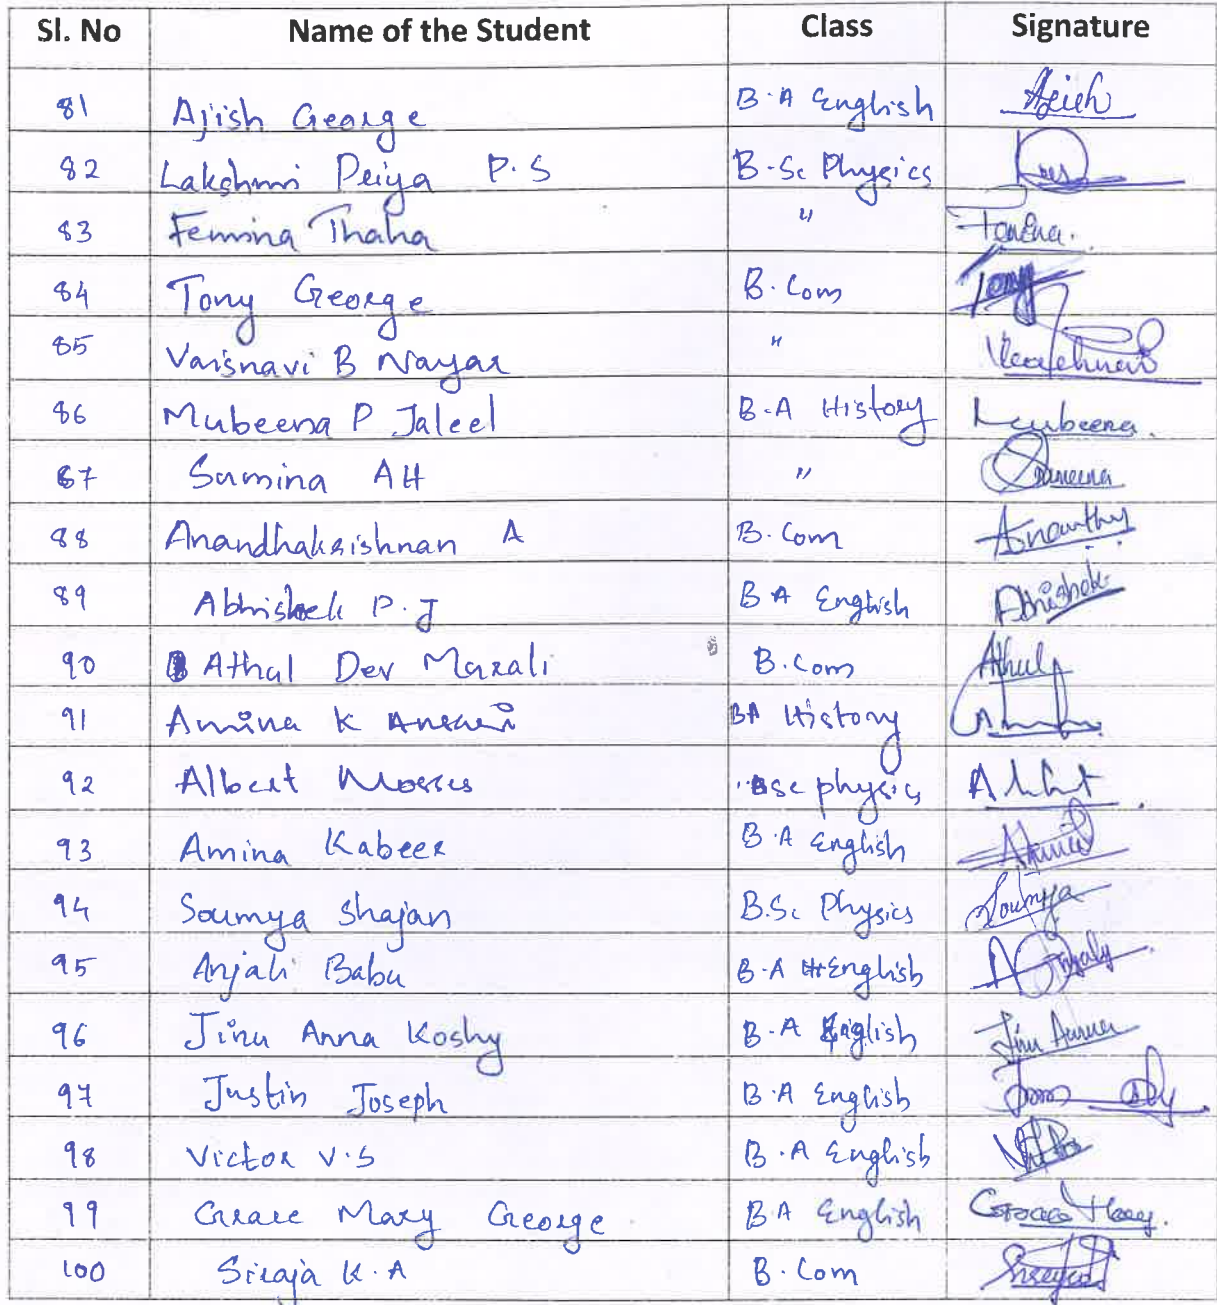 Sl. No Name of the Student Class Signature
81 Ajish George B.A English Ajish
82 Lakshmi Priya P.S B.Sc Physics
83 Femina Thaha "
84 Tony George B.Com Tony
85 Vaisnavi B Nayar "
86 Mubeena P Jaleel B.A History Mubeena.
87 Sumina AH "
88 Anandhakrishnan A B.Com
89 Abhishek P.J B A English Abhishek
90 Athul Dev Marali B.Com Athul
91 Amina K Ansari BA History
92 Albert Mosses Bsc physics
93 Amina Kabeer B.A English
94 Soumya Shajan B.Sc Physics Soumya
95 Anjali Babu B.A English
96 Jinu Anna Koshy B.A English Jinu Anna
97 Justin Joseph B.A English
98 Victor V.S B.A English
99 Grace Mary George B.A English Grace Mary.
100 Sreeja K.A B.Com